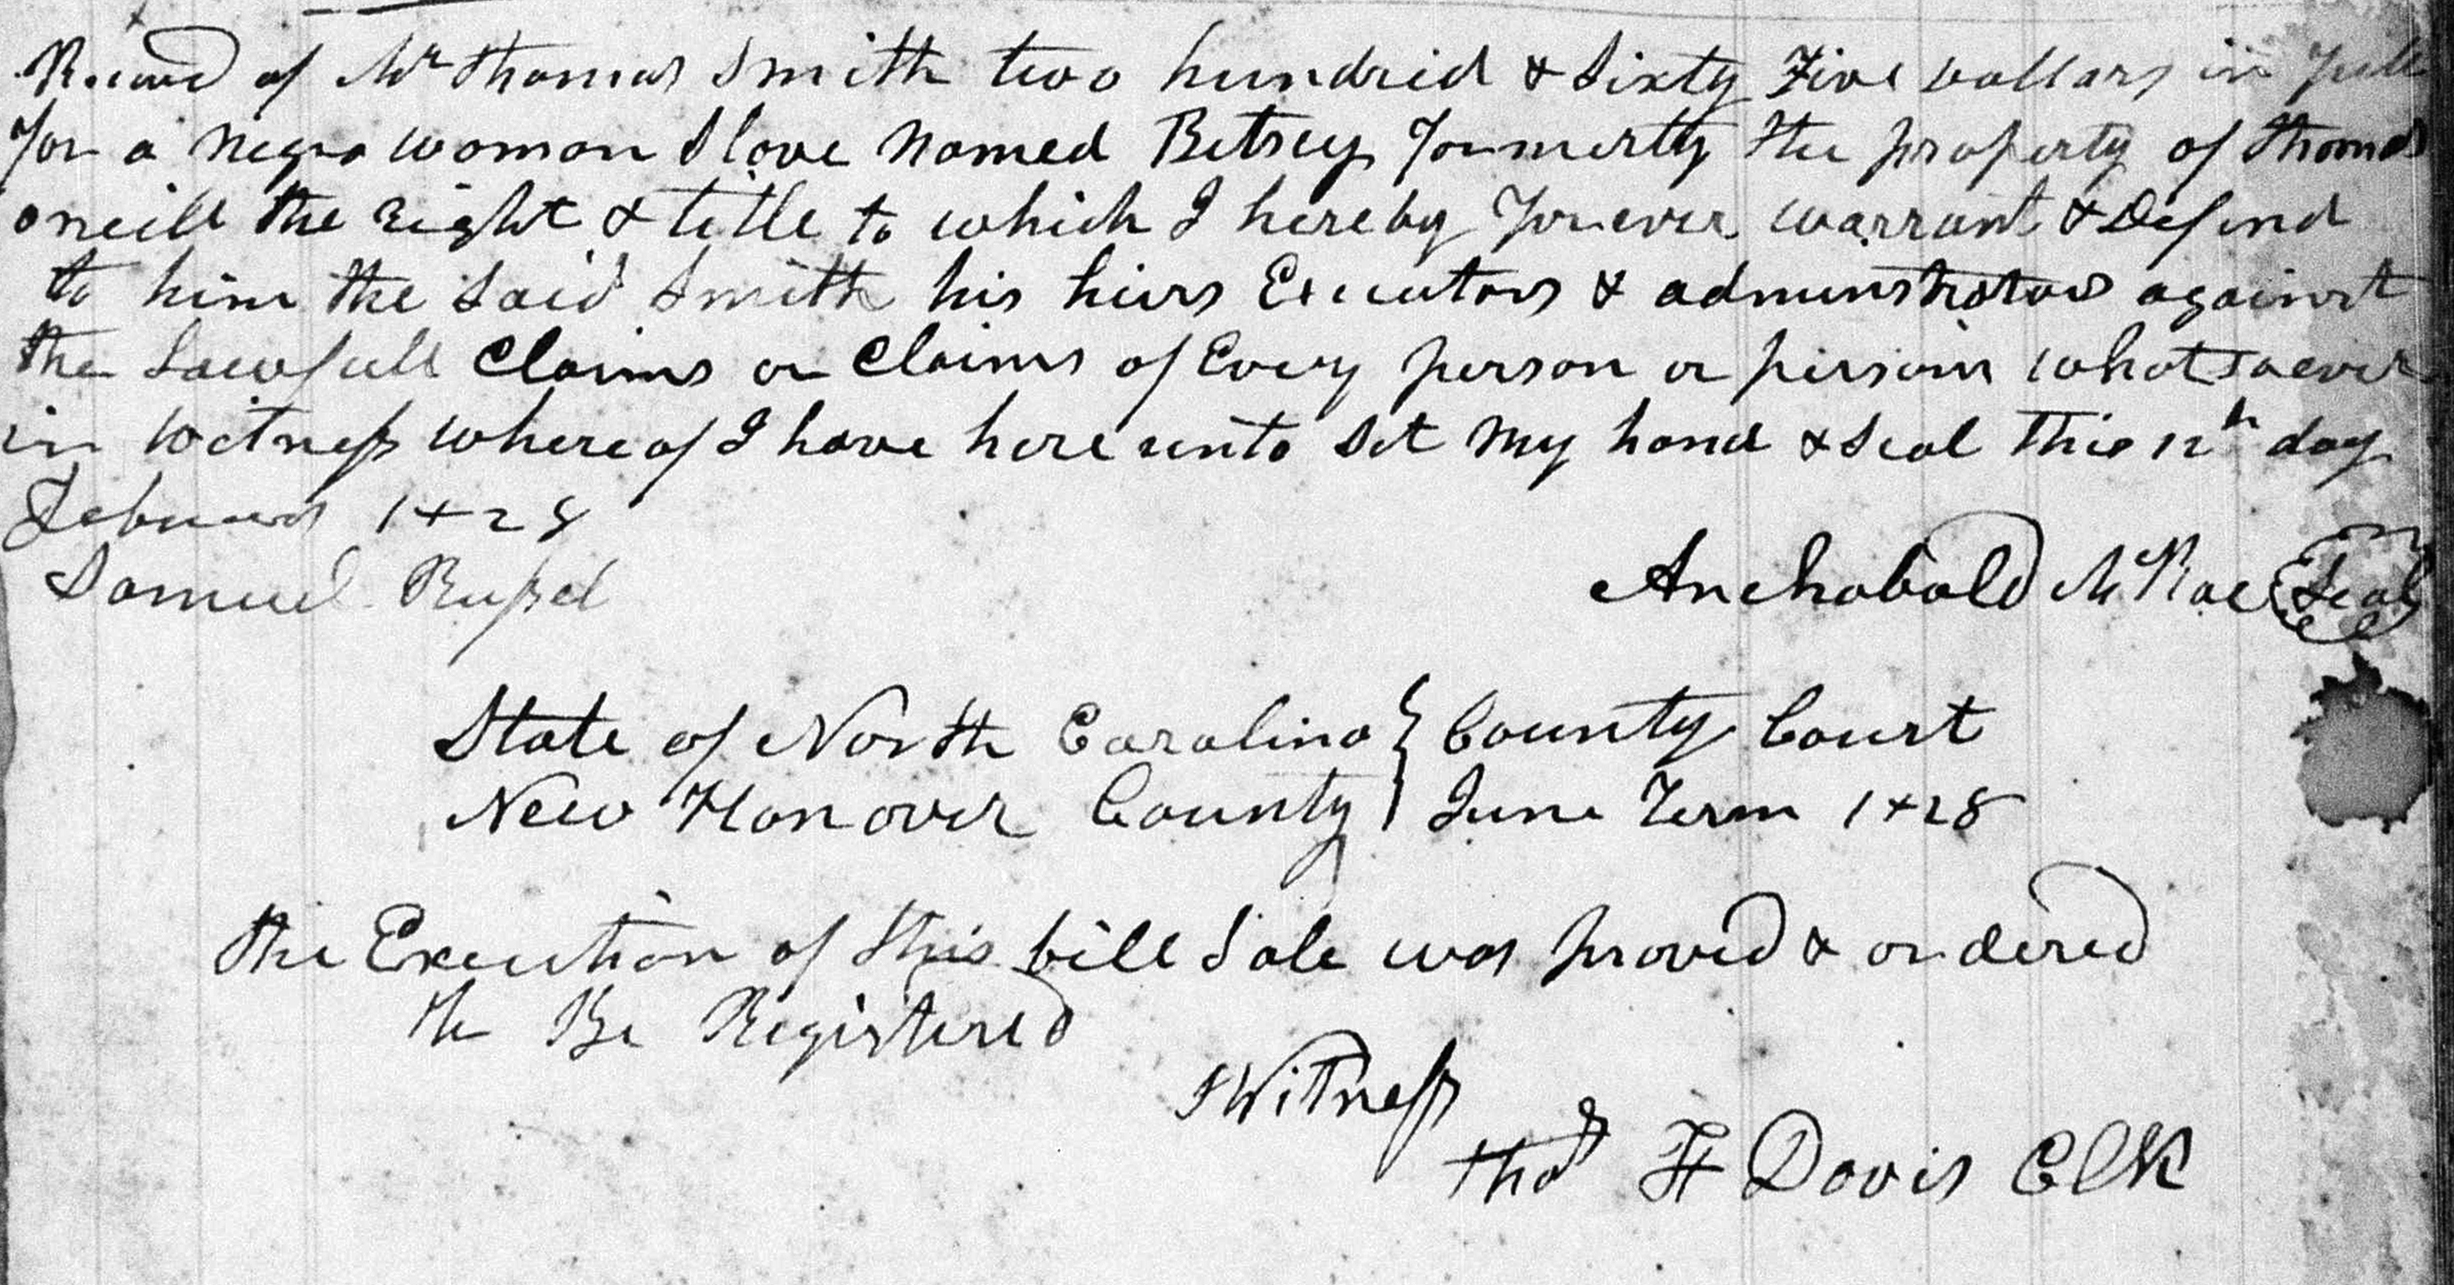 Recived of Mr Thomas Smith two hundrid & Sixty Five Dollars in full
for a negro woman Slave Named Betsey formerly the property of thomas
oneill the right & title to which I hereby forever warrant & Defend
to him the said Smith his heirs Executors & adminstrators against
the Lawfull Claims or Claims of Every person or persons whatsoever
in Witness whereof I have here unto set my hand & Seal This 12th day
February 1828
Samuel Russel
Archobald McRae Seal
State of North Carolina } County Court
New Hanover County } June Term 1828
the Execution of this bill Sale was proved & ordered
to Be Registered
Witness
Thos F Davis Clk